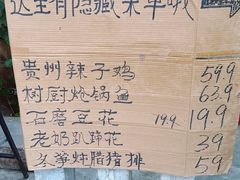 这里有隐藏菜单哦
贵州辣子鸡 59.9
树厨炝锅鱼 63.9
石磨豆花 19.9 19.9
老奶趴蹄花 39
炖腊猪排 59